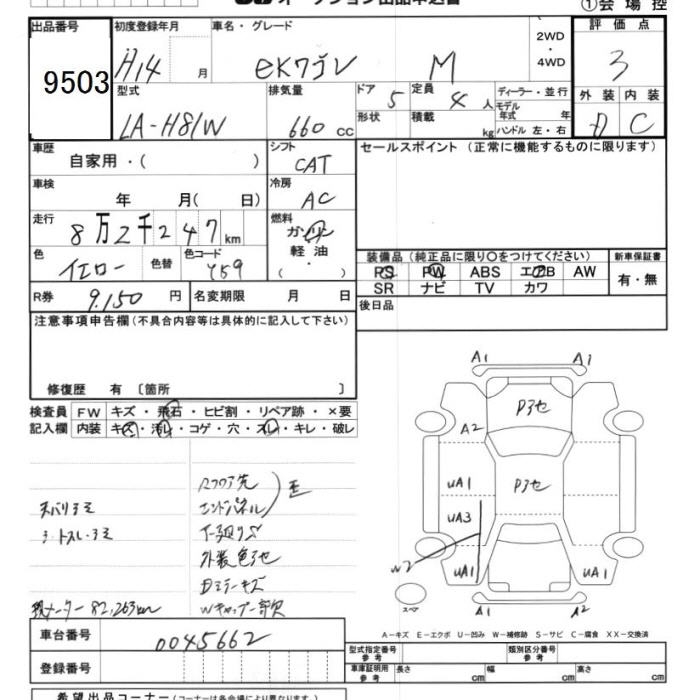 オークション出品申込書
①会場控
出品番号
9503
初度登録年月
H14 月
車名・グレード
eKワゴン M
2WD
・
4WD
評価点
3
型式
LA-H81W
排気量
660 cc
ドア
5
定員
4 人
ディーラー・並行
モデル年式 年
ハンドル 左・右
形状
積載
kg
外装 内装
D C
車歴
自家用・( )
シフト
CAT
セールスポイント (正常に機能するものに限ります)
車検
年 月( 日)
冷房
AC
走行
8万2千247 km
燃料
ガソリン
軽油
( ・ )
色
イエロー
色替
色コード
Y59
装備品 (純正品に限り○をつけてください)
PS PW ABS エアB AW
SR ナビ TV カワ
新車保証書
有・無
R券 9,150 円
名変期限 月 日
後日品
注意事項申告欄 (不具合内容等は具体的に記入して下さい)
修復歴 有 〔箇所 〕
検査員 FW キズ・飛石・ヒビ割・リペア跡・×要
記入欄 内装 キズ・汚れ・コゲ・穴・スレ・キレ・破レ
エンドパネル
外装色アセ
現メーター 82,263km
A1
A1
A2
UA1
UA3
W2
UA1
UA1
A1
A2
スペア
A-キズ E-エクボ U-凹み W-補修跡 S-サビ C-腐食 XX-交換済
車台番号
0045662
登録番号
型式指定番号
参考
類別区分番号
参考
車庫証明用
参考
長さ cm
幅 cm
高さ cm
希望出品コーナー (コーナーは各会場により異なります。)